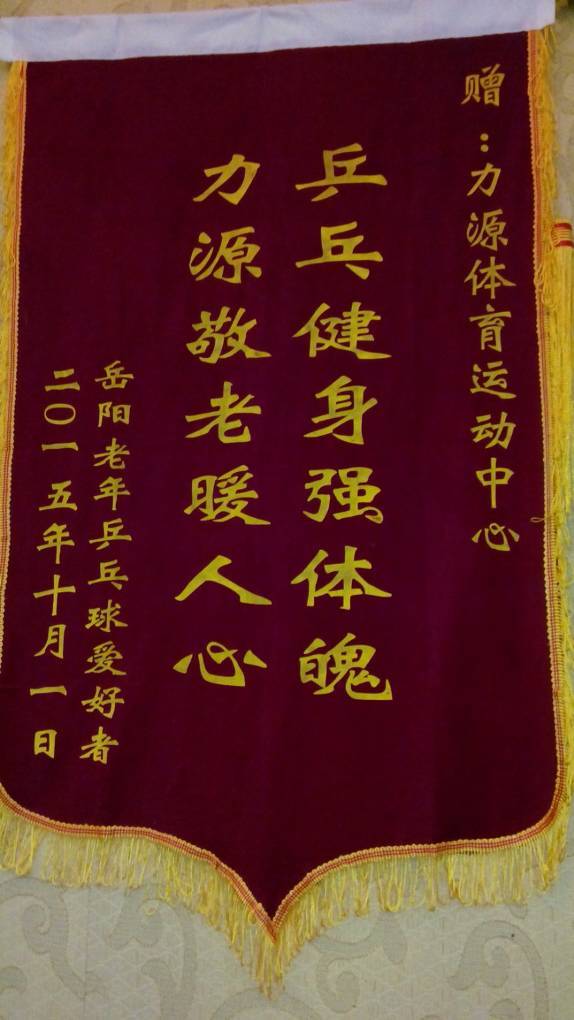 赠：力源体育运动中心
乒乓健身强体魄
力源敬老暖人心
岳阳老年乒乓球爱好者
二〇一五年十月一日